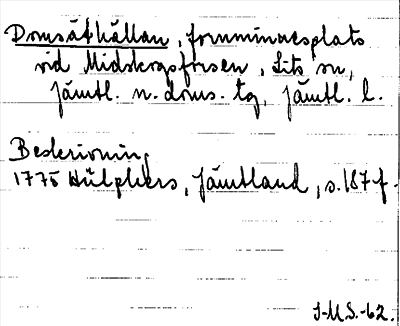 Domsäthällan, fornminnesplats
vid Midskogsforsen, Lits sn,
Jämtl. n. doms. tg, Jämtl. l.
Beskrivning
1775 Hülphers, Jämtland, s. 187 f.
J-M S.-62.